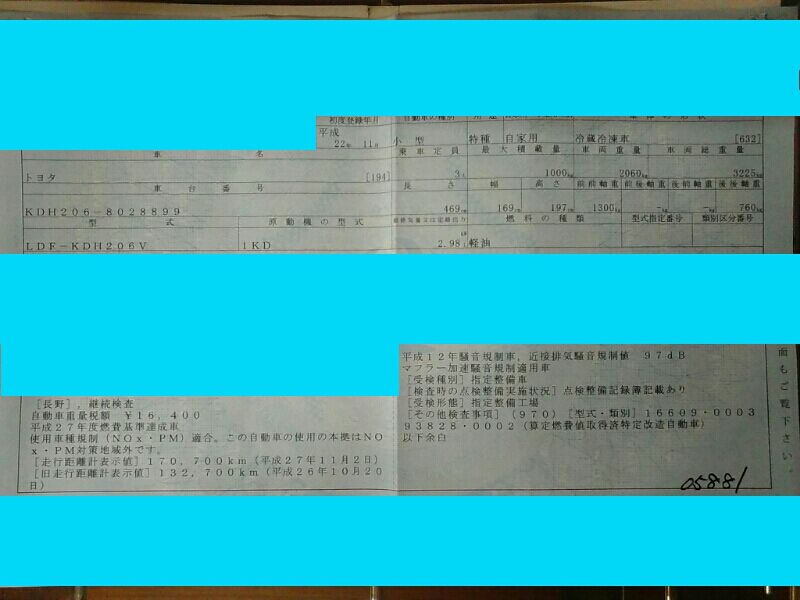 初度登録年月
自動車の種別
平成
22年 11月
小型
特種
自家用
冷蔵冷凍車
[632]
車 名
乗車定員
最大積載量
車両重量
車両総重量
トヨタ
[194]
3人
1000kg
2060kg
3225kg
車台番号
長さ
幅
高さ
前前軸重
前後軸重
後前軸重
後後軸重
KDH206-8028899
469cm
169cm
197cm
1300kg
-kg
-kg
760kg
型式
原動機の型式
総排気量又は定格出力
燃料の種類
型式指定番号
類別区分番号
LDF-KDH206V
1KD
kW
2.98L
軽油
平成12年騒音規制車,近接排気騒音規制値 97dB
マフラー加速騒音規制適用車
[受検種別]指定整備車
[検査時の点検整備実施状況]点検整備記録簿記載あり
[受検形態]指定整備工場
[その他検査事項](970)[型式・類別]16609・0003
93828・0002(算定燃費値取得済特定改造自動車)
以下余白
[長野],継続検査
自動車重量税額 ¥16,400
平成27年度燃費基準達成車
使用車種規制(NOx・PM)適合。この自動車の使用の本拠はNO
x・PM対策地域外です。
[走行距離計表示値]170,700km(平成27年11月2日)
[旧走行距離計表示値]132,700km(平成26年10月20
日)
面もご覧下さい。
05881